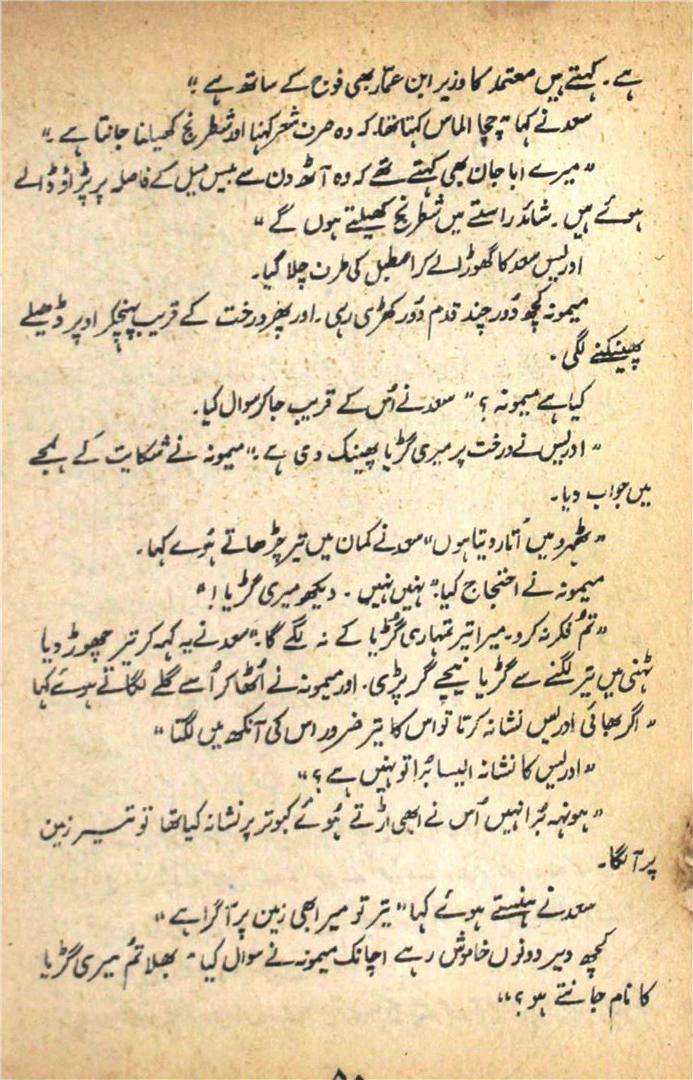 ہے۔ کہتے ہیں معتمد کا وزیر ابن عمار بھی فوج کے ساتھ ہے۔"
سعد نے کہا "چچا الماس کہتا تھا کہ وہ صرف شعر کہنا اور شطرنج کھیلنا جانتا ہے۔"
"میرے ابا جان بھی کہتے تھے کہ وہ آٹھ دن سے بیس میل کے فاصلہ پر پڑاؤ ڈالے
ہوئے ہیں۔ شائد راستے میں شطرنج کھیلتے ہوں گے"
ادریس سعد کا گھوڑا لے کر اصطبل کی طرف چلا گیا۔
میمونہ کچھ دُور چند قدم دُور کھڑی رہی۔ اور پھر درخت کے قریب پہنچکر اوپر ڈھیلے
پھینکنے لگی۔
کیا ہے میمونہ؟" سعد نے اُس کے قریب جا کر سوال کیا۔
"ادریس نے درخت پر میری گڑیا پھینک دی ہے۔" میمونہ نے شکایت کے لہجے
میں جواب دیا۔
"ٹھہرو میں اُتار دیتا ہوں" سعد نے کمان میں تیر چڑھاتے ہُوے کہا۔
میمونہ نے احتجاج کیا۔ "نہیں نہیں۔ دیکھو میری گڑیا!"
"تمُ فکر نہ کرو۔ میرا تیر تمہاری گڑیا کے نہ لگے گا۔" سعد نے یہ کہہ کر تیر چھوڑ دیا
ٹہنی میں تیر لگنے سے گڑیا نیچے گر پڑی۔ اور میمونہ نے اُٹھا کر اُسے گلے لگاتے ہوئے کہا
"اگر بھائی ادریس نشانہ کرتا تو اس کا تیر ضرور اس کی آنکھ میں لگتا"
"ادریس کا نشانہ ایسا بُرا تو نہیں ہے؟"
"ہونہہ بُرا نہیں اُس نے ابھی اڑتے ہُوئے کبوتر پر نشانہ کیا تھا تو تیر زمین
پر آ لگا۔
سعد نے ہنستے ہوئے کہا "تیر تو میرا بھی زمین پر آ گرا ہے"
کچھ دیر دونوں خاموش رہے اچانک میمونہ نے سوال کیا "بھلا تمُ میری گڑیا
کا نام جانتے ہو؟"